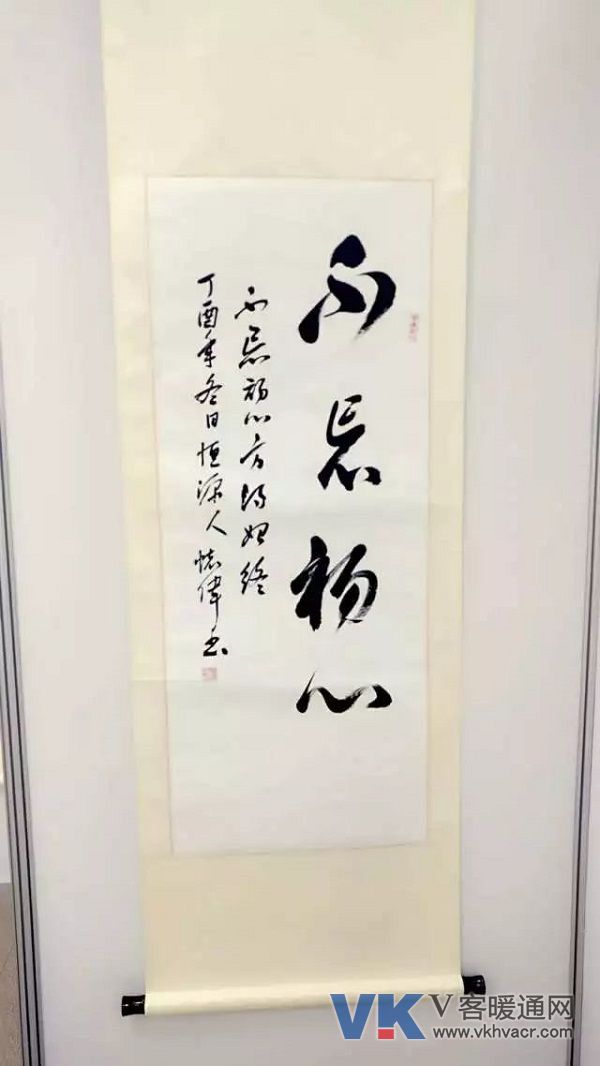 不忘初心
不忘初心方得始终
丁酉年冬日恒源人怀伟书
VK V客暖通网
www.vkhvacr.com